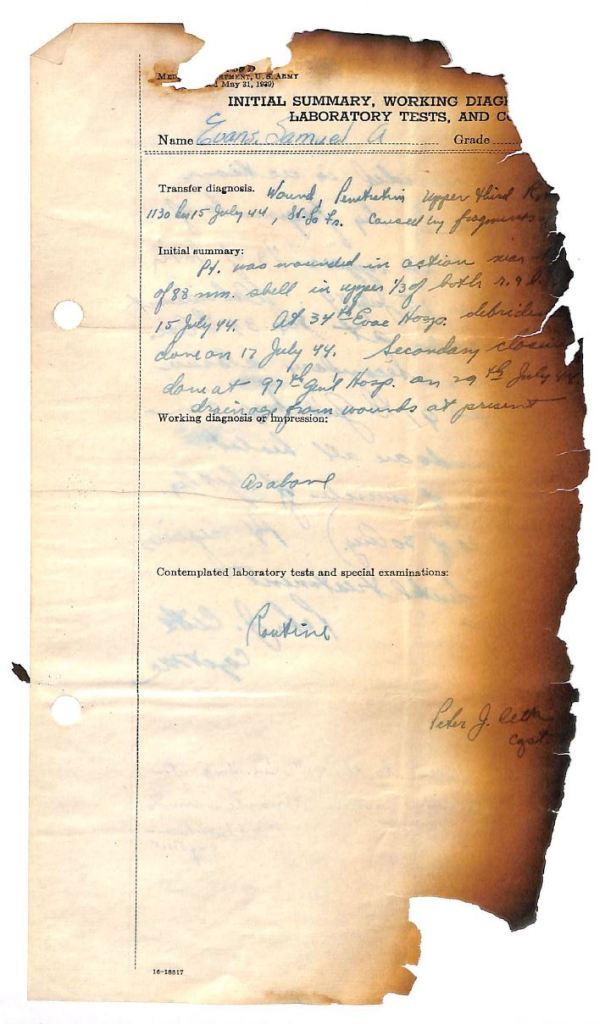 U. S. ARMY
May 31, 1929)
INITIAL SUMMARY, WORKING
LABORATORY TESTS, AND
Name Evans, Samuel A Grade
Transfer diagnosis. Wound, Penetratin upper third
1130 hrs 15 July 44, St. Lo Fr. Caused by fragments
Initial summary:
Pt. was wounded in action
of 88 mm. shell in upper 1/3 of both r. & l.
15 July 44. At 34th Evac Hosp.
done on 17 July 44. Secondary
done at 97th Gen'l Hosp. on 29th July
drainage from wounds at present
Working diagnosis or impression:
As above
Contemplated laboratory tests and special examinations:
Routine
Peter J.
Capt.
16-18817